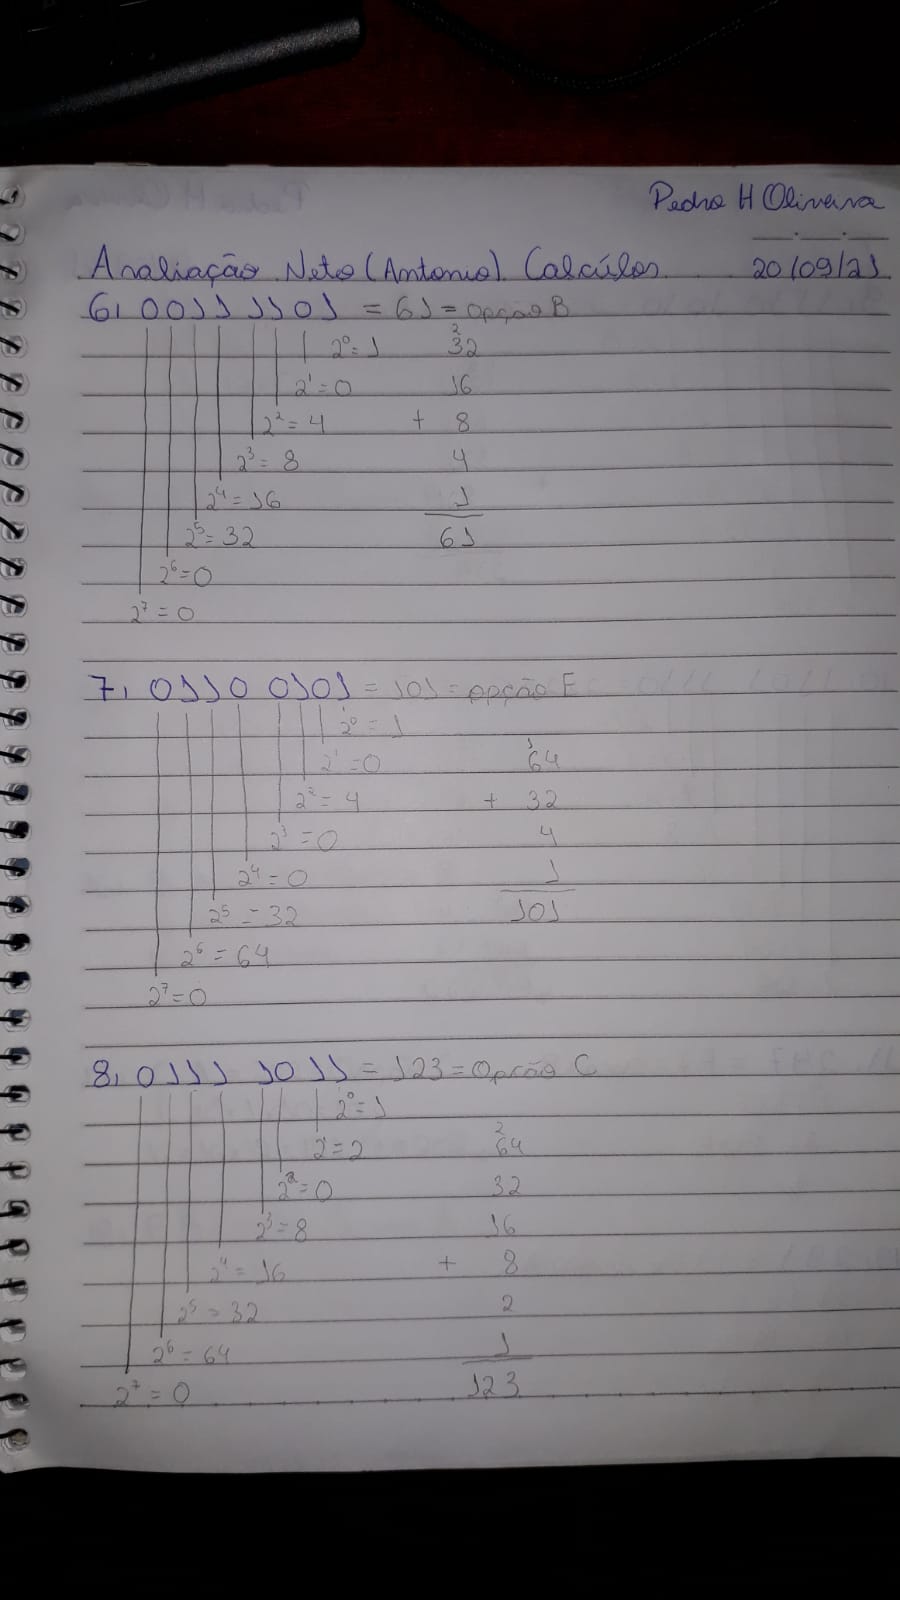 Pedro H Oliveira
Avaliação Neto (Antonio). Calcúlos. 20/09/21
6, 0011 1101 = 61 = opção B
2⁰= 1
2¹=0
2²= 4
2³= 8
2⁴= 16
2⁵= 32
2⁶=0
2⁷= 0
2
32
16
+ 8
4
1
61
7, 0110 0101 = 101 = opção E
2⁰= 1
2¹=0
2²= 4
2³ =0
2⁴= 0
2⁵ = 32
2⁶ = 64
2⁷=0
1
64
+ 32
4
1
101
8, 0111 1011 = 123 = Opção C
2⁰=1
2¹=2
2²=0
2³=8
2⁴= 16
2⁵ = 32
2⁶= 64
2⁷ = 0
2
64
32
16
+ 8
2
1
123